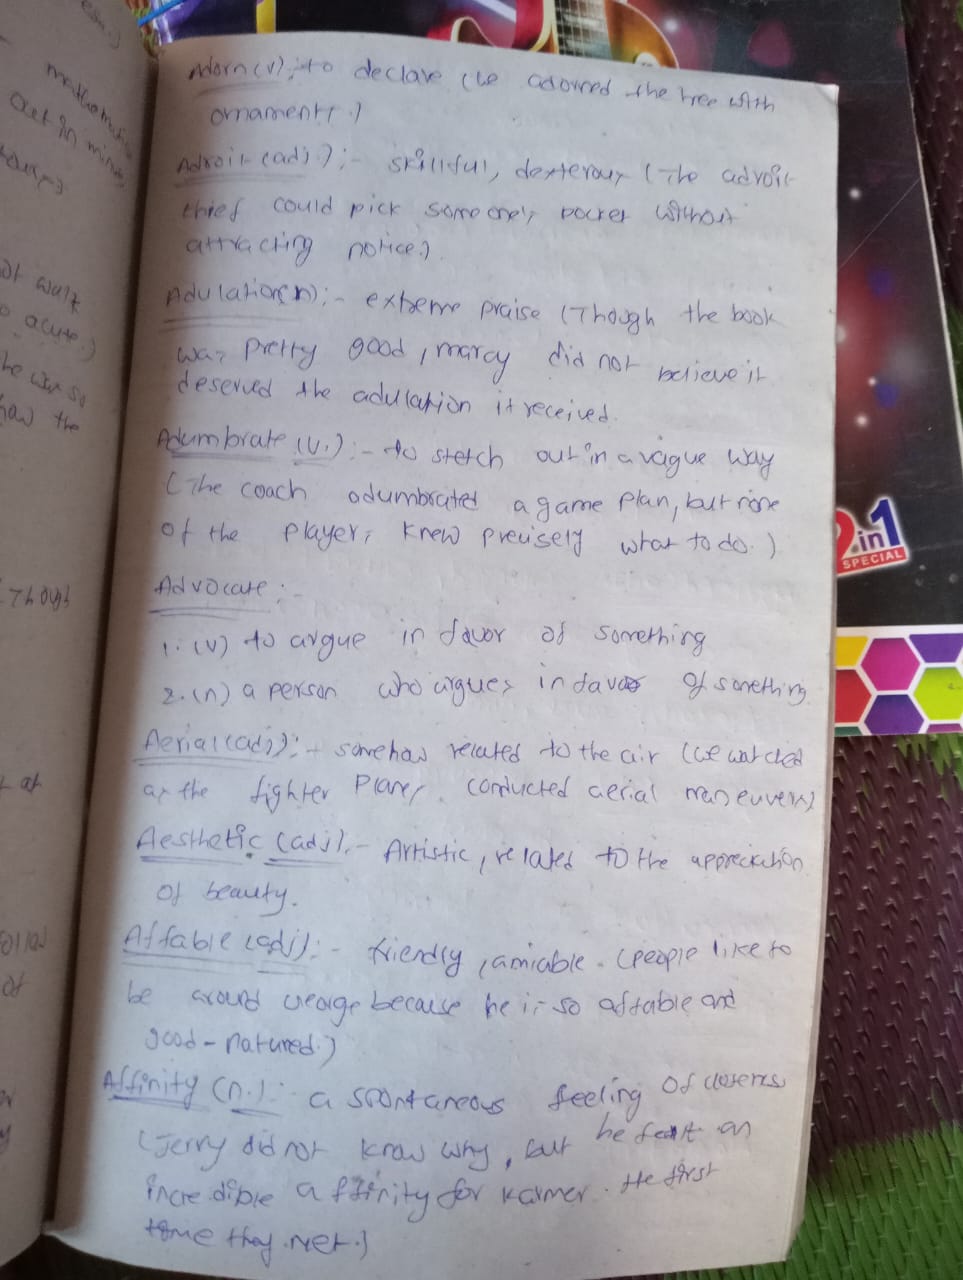 Adorn (v) :- to declare (we adorned the tree with
ornaments.)
Adroit (adj.) :- skillful, dexterous (The adroit
thief could pick someone's pocket without
attracting notice.)
Adulation(n) :- extreme praise (Though the book
was pretty good, marcy did not believe it
deserved the adulation it received.
Adumbrate (v.) :- to stetch out in a vague way
(The coach adumbrated a game plan, but none
of the players knew precisely what to do.)
Advocate :-
1. (v) to argue in favor of something
2. (n) a person who argues in favor of something.
Aerial (adj) :- somehow related to the air (we watched
as the fighter planes conducted aerial maneuvers)
Aesthetic (adj).- Artistic, related to the appreciation
of beauty.
Affable (adj) :- friendly, amiable. (people like to
be around George because he is so affable and
good-natured.)
Affinity (n.) :- a spontaneous feeling of closeness
(Jerry did not know why, but he felt an
incredible affinity for Kramer. the first
time they met.)
out in minutes
not walk
acute.)
he was so
how the
Though
at
of
2 in 1
SPECIAL